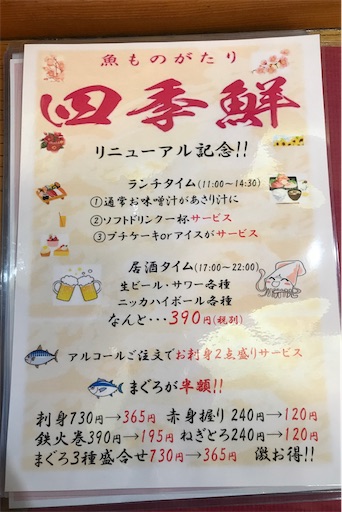 魚ものがたり
四季鮮
リニューアル記念!!
ランチタイム(11:00〜14:30)
①通常お味噌汁があさり汁に
②ソフトドリンク一杯サービス
③プチケーキorアイスがサービス
居酒タイム(17:00〜22:00)
生ビール・サワー各種
ニッカハイボール各種
なんと・・・390円(税別)
アルコールご注文でお刺身2点盛りサービス
まぐろが半額!!
刺身730円→365円 赤身握り240円→120円
鉄火巻390円→195円 ねぎとろ240円→120円
まぐろ3種盛合せ730円→365円 激お得!!